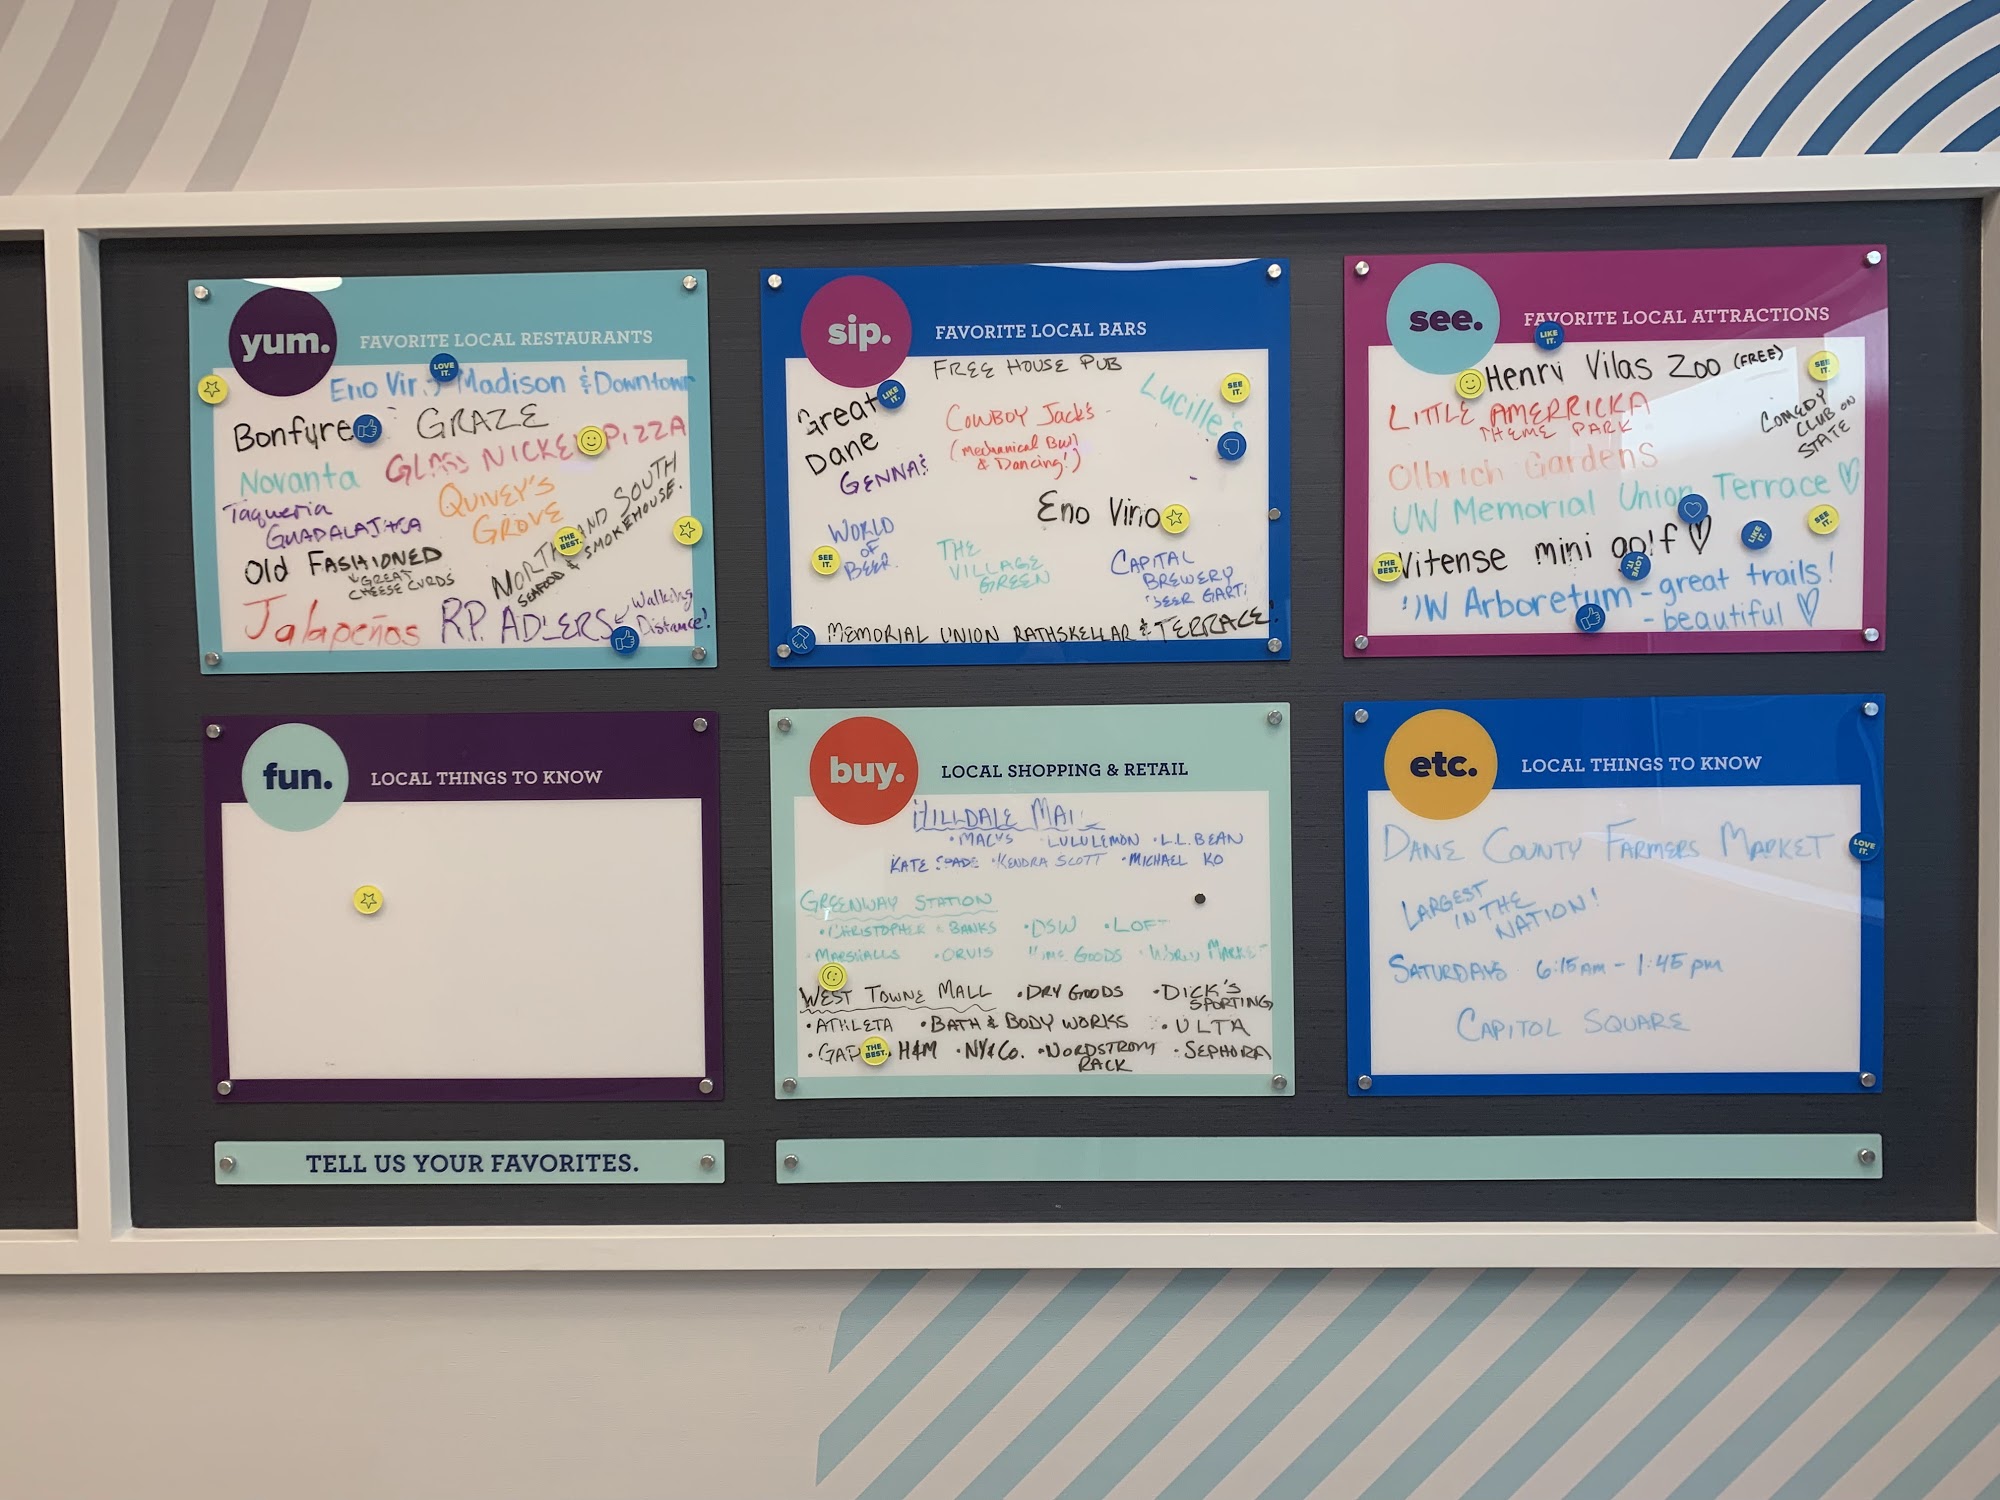 yum.
FAVORITE LOCAL RESTAURANTS
LOVE IT.
Eno Vir Madison & Downtown
Bonfyre
GRAZE
Novanta
GLASS NICKEL PIZZA
Taqueria
GUADALAJARA
QUIVEY'S
GROVE
THE BEST.
NORTH AND SOUTH
SEAFOOD & SMOKEHOUSE.
Old FASHIONED
GREAT
CHEESE CURDS
Jalapeños
R.P. ADLERS
Walking
Distance!
sip.
FAVORITE LOCAL BARS
FREE HOUSE PUB
Great
Dane
LIKE IT.
COWBOY JACK'S
(Mechanical Bull
& Dancing!)
Lucille's
SEE IT.
GENNA'S
Eno Vino
WORLD
OF
BEER
SEE IT.
THE
VILLAGE
GREEN
CAPITAL
BREWERY
BEER GART
MEMORIAL UNION RATHSKELLAR & TERRACE!
see.
FAVORITE LOCAL ATTRACTIONS
LIKE IT.
Henri Vilas Zoo (FREE)
SEE IT.
LITTLE AMERRICKA
THEME PARK
COMEDY
CLUB ON
STATE
Olbrich Gardens
UW Memorial Union Terrace
LIKE IT.
SEE IT.
THE BEST.
Vitense mini golf
LOVE IT.
UW Arboretum - great trails!
- beautiful
fun.
LOCAL THINGS TO KNOW
buy.
LOCAL SHOPPING & RETAIL
HILLDALE MAL
• MACYS LULULEMON • L.L. BEAN
KATE SPADE • KENDRA SCOTT • MICHAEL KO
GREENWAY STATION
• CHRISTOPHER & BANKS • DSW • LOFT
• MARSHALLS • ORVIS GOODS • WORLD MARKET
WEST TOWNE MALL • DRY GOODS • DICK'S
SPORTING
• ATHLETA • BATH & BODY WORKS • ULTA
• GAP THE BEST. H&M • NY & Co. • NORDSTROM • SEPHORA
RACK
etc.
LOCAL THINGS TO KNOW
DANE COUNTY FARMERS MARKET
LOVE IT.
LARGEST
IN THE
NATION!
SATURDAYS 6:15AM - 1:45 pm
CAPITOL SQUARE
TELL US YOUR FAVORITES.